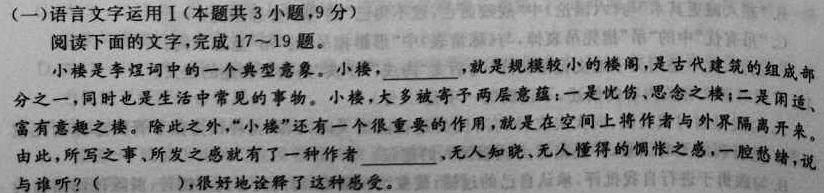 (一)语言文字运用Ⅰ(本题共3小题,9分)
阅读下面的文字,完成17~19题。
小楼是李煜词中的一个典型意象。小楼,______,就是规模较小的楼阁,是古代建筑的组成部
分之一,同时也是生活中常见的事物。小楼,大多被寄予两层意蕴:一是忧伤、思念之楼;二是闲适、
富有意趣之楼。除此之外,“小楼”还有一个很重要的作用,就是在空间上将作者与外界隔离开来。
由此,所写之事、所发之感就有了一种作者______、无人知晓、无人懂得的惆怅之感,一腔愁绪,说
与谁听?( ),很好地诠释了这种感受。